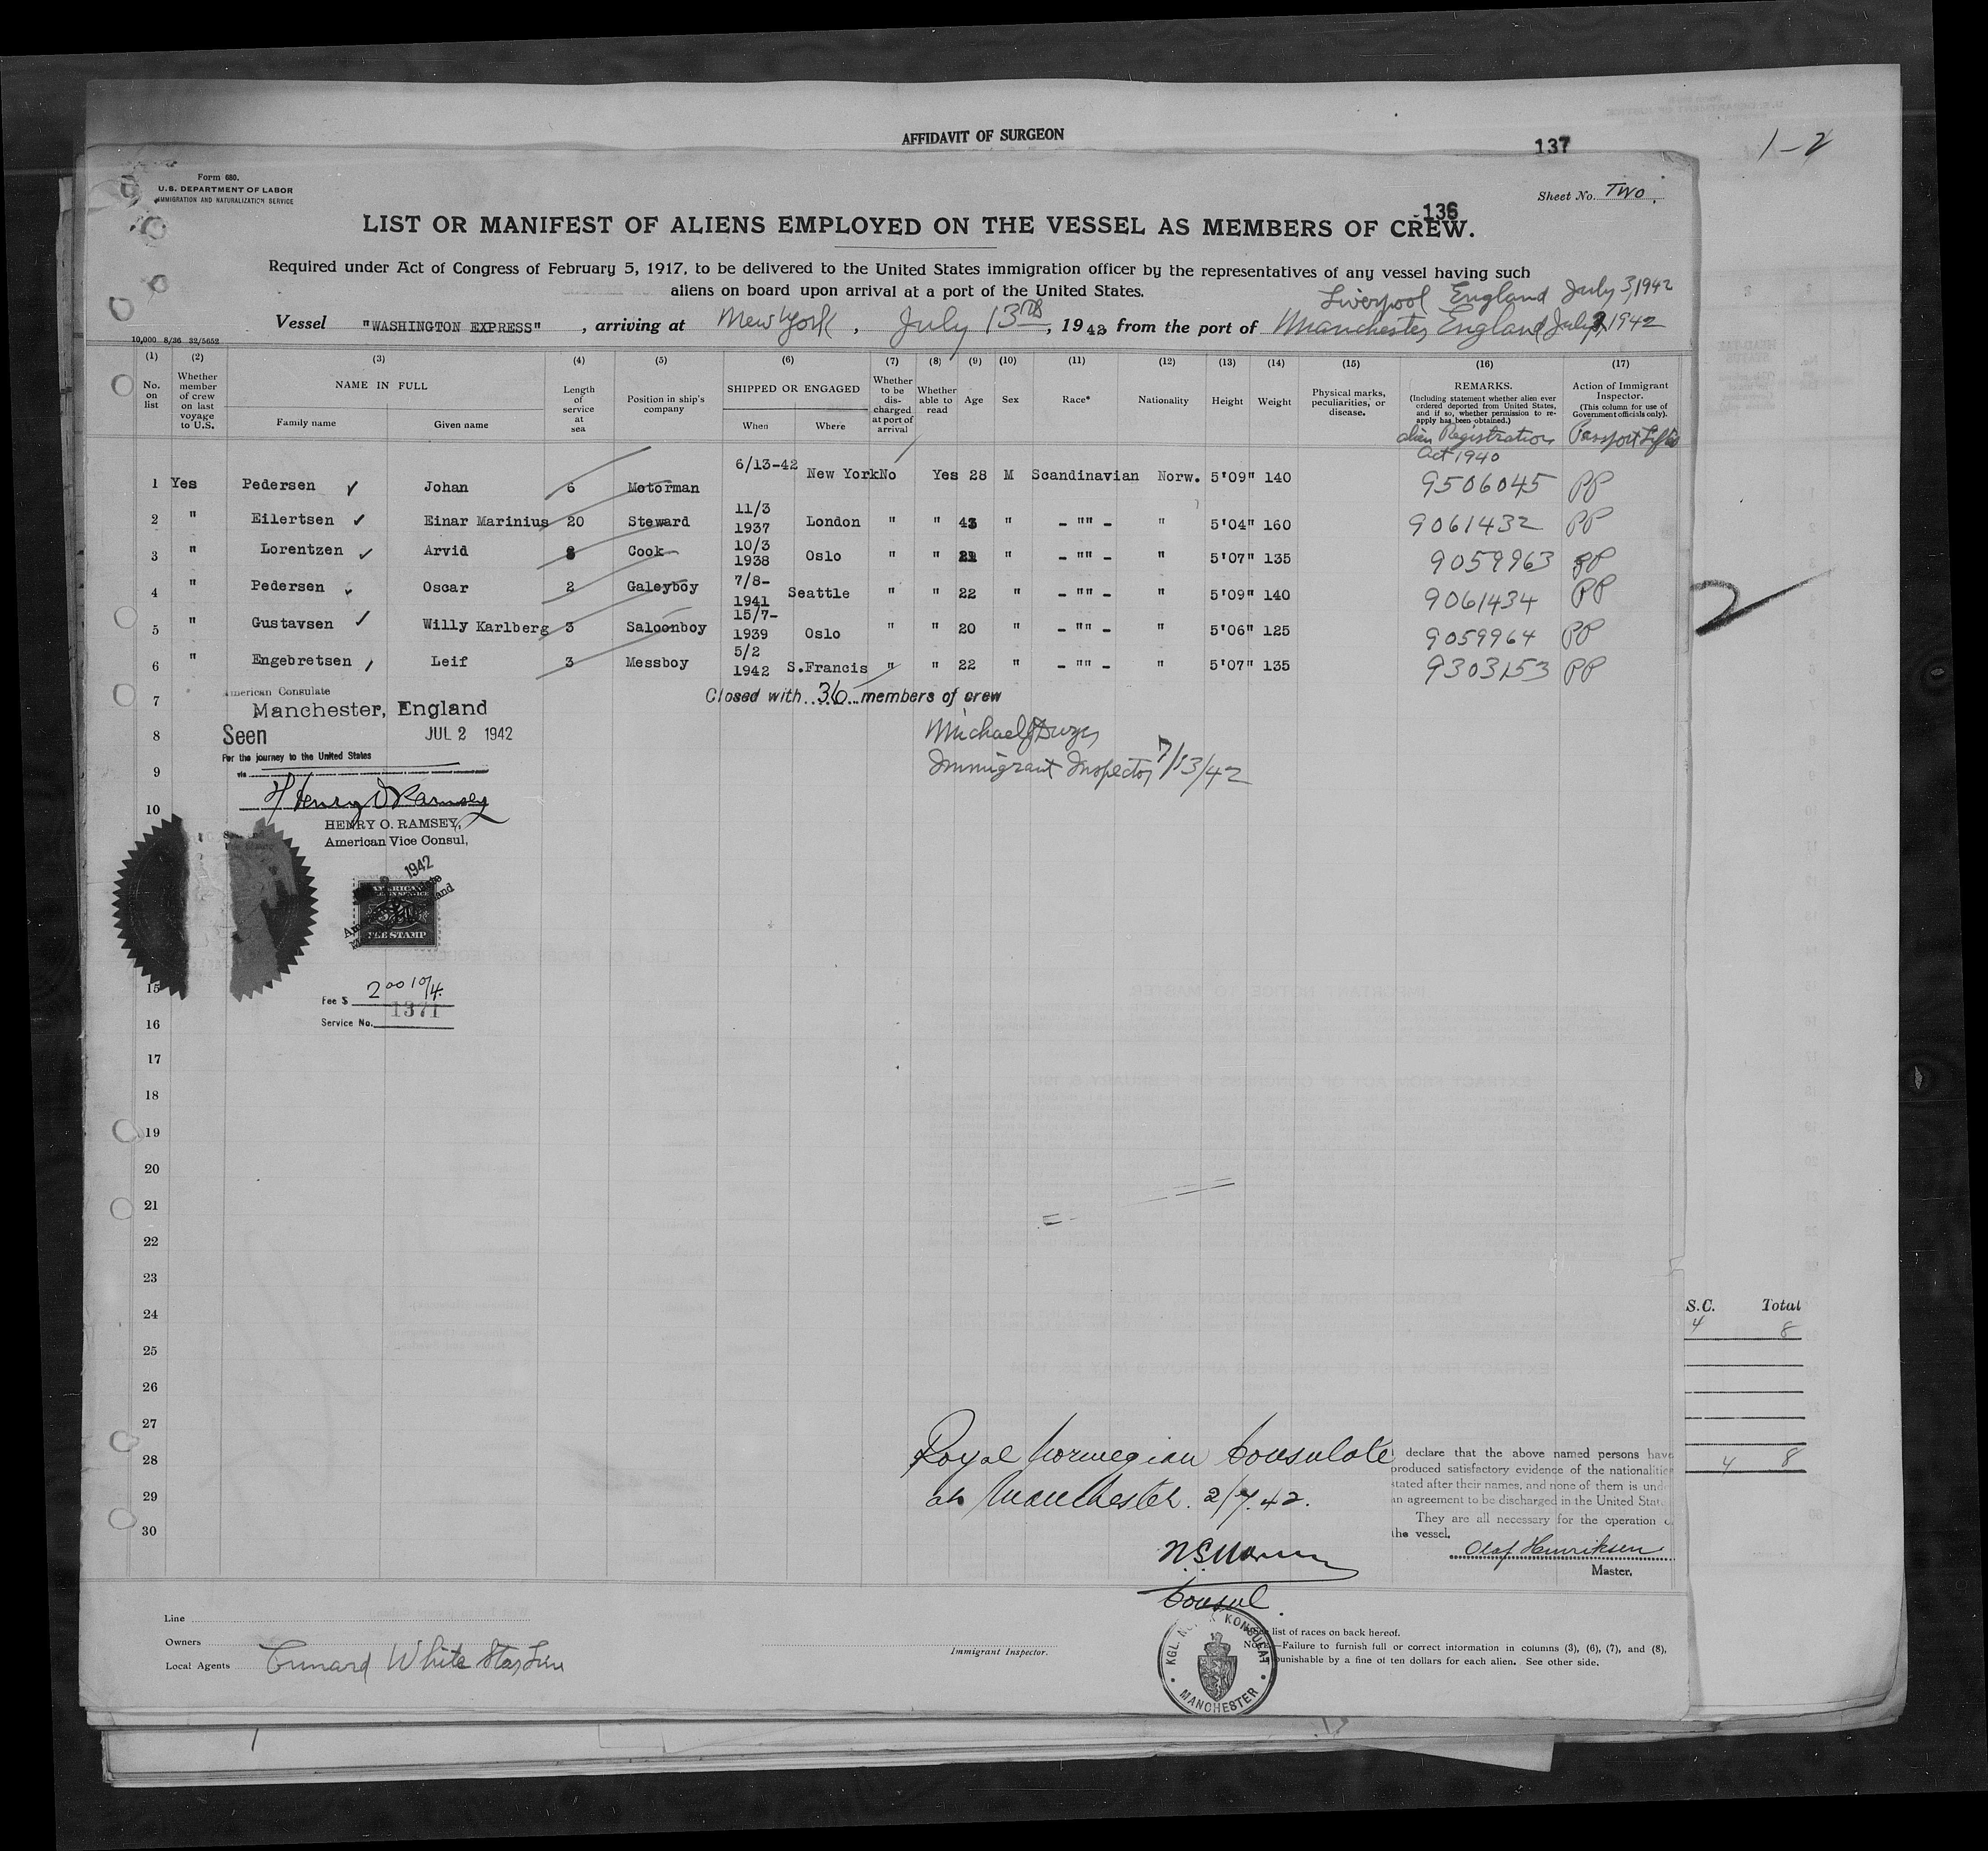 AFFIDAVIT OF SURGEON
137
1-2
Form 680.
U.S. DEPARTMENT OF LABOR
IMMIGRATION AND NATURALIZATION SERVICE
Sheet No. Two.
136
LIST OR MANIFEST OF ALIENS EMPLOYED ON THE VESSEL AS MEMBERS OF CREW.
Required under Act of Congress of February 5, 1917, to be delivered to the United States immigration officer by the representatives of any vessel having such
aliens on board upon arrival at a port of the United States.
Liverpool England July 3, 1942
Vessel "WASHINGTON EXPRESS", arriving at New York, July 13th, 1942 from the port of Manchester, England July 2, 1942
10,000 8/36 32/5652
(1) (2) (3) (4) (5) (6) (7) (8) (9) (10) (11) (12) (13) (14) (15) (16) (17)
No. on list
Whether member of crew on last voyage to U.S.
NAME IN FULL
Family name Given name
Length of service at sea
Position in ship's company
SHIPPED OR ENGAGED
When Where
Whether to be discharged at port of arrival
Whether able to read
Age Sex Race* Nationality Height Weight
Physical marks, peculiarities, or disease.
REMARKS.
(Including statement whether alien ever ordered deported from United States, and if so, whether permission to reapply has been obtained.)
Alien Registration
Act 1940
Action of Immigrant Inspector.
(This column for use of Government officials only).
Passport
1 Yes Pedersen Johan 6 Motorman 6/13-42 New York No Yes 28 M Scandinavian Norw. 5'09" 140 9506045 PP
2 " Eilertsen Einar Marinius 20 Steward 11/3 1937 London " " 43 " - "" - " 5'04" 160 9061432 PP
3 " Lorentzen Arvid Cook 10/3 1938 Oslo " " " - "" - " 5'07" 135 9059963 PP
4 " Pedersen Oscar 2 Galeyboy 7/8- 1941 Seattle " " 22 " - "" - " 5'09" 140 9061434 PP
5 " Gustavsen Willy Karlberg 3 Saloonboy 15/7- 1939 Oslo " " 20 " - "" - " 5'06" 125 9059964 PP
6 " Engebretsen Leif 3 Messboy 5/2 1942 S.Francis " " 22 " - "" - " 5'07" 135 9303153 PP
2
7
American Consulate
Manchester, England
Closed with 36 members of crew
8
Seen JUL 2 1942
Michael
For the journey to the United States
9
via
Immigrant Inspector 7/13/42
Henry O Ramsey
10
HENRY O. RAMSEY,
American Vice Consul,
1942
AMERICAN
FEE STAMP
15
Fee $ 2 00 10/4.
1371
Service No.
16
17
18
19
20
21
22
23
24
25
26
27
28
29
30
S.C. Total
4 8
4 8
Royal Norwegian Consulate
at Manchester. 2/7.42.
Consul.
declare that the above named persons have
produced satisfactory evidence of the nationalities
stated after their names, and none of them is under
an agreement to be discharged in the United States
They are all necessary for the operation of
the vessel.
Olaf Henriksen
Master.
KGL. KONSULAT
MANCHESTER
Line
Owners
Local Agents Cunard White Star Line
Immigrant Inspector.
list of races on back hereof.
Failure to furnish full or correct information in columns (3), (6), (7), and (8),
punishable by a fine of ten dollars for each alien. See other side.